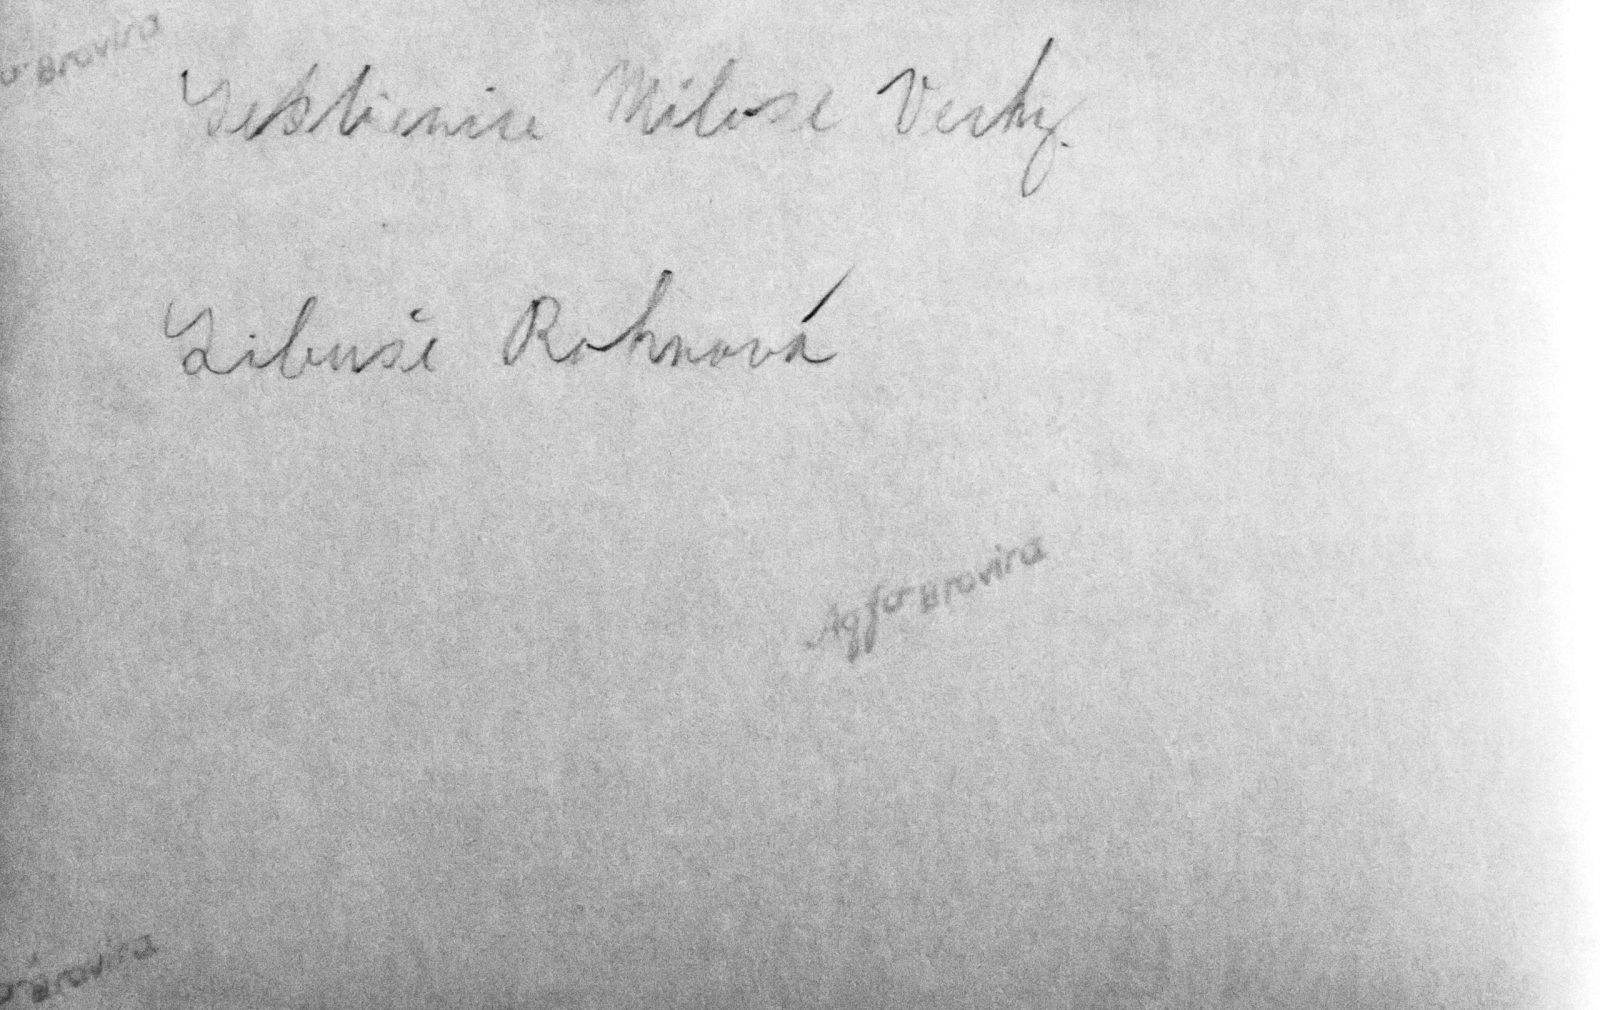 Brovira
Sestřenice Miloše Verky.
Libuše Rohnová
Agfa Brovira
Brovira